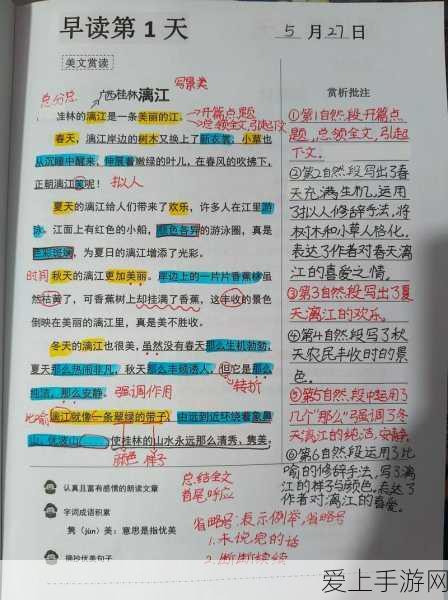 早读第1天
5月27日
美文赏读
写景类
总分总
广西桂林漓江
桂林的漓江是一条美丽的江。
开篇点题
总领全文,引起下文
春天，漓江岸边的树木又换上了新衣裳；小草也
从沉睡中醒来，伸展着嫩绿的叶儿，在春风的吹拂下，
正朝漓江笑呢！
拟人
夏天的漓江给人们带来了欢乐，许多人在江里游
泳。江面上有红色的小船，颜色各异的游泳圈，真是
为夏日的漓江增添了光彩。
时间
秋天的漓江更加美丽。岸边上的一片片香蕉林虽
然枯黄了，可香蕉树上却挂满了香蕉，这丰收的景色
倒映在美丽的漓江里，真是美不胜收。
冬天的漓江也很美，虽然没有春天那么生机勃勃，
夏天那么热闹非凡，秋天那么丰硕诱人，但它是那么
纯洁，那么安静。
强调作用
转折
比喻
漓江就像一条翠绿的带子，由远到近环绕着象鼻
山、伏波山
使桂林的山水永远那么清秀、隽美。
颜色
样子
赏析批注
①第1自然段开篇点
题，总领全文，引起
下文。
②第2自然段写出了春
天充满生机，运用
了拟人修辞手法，将
树木和小草人格化，
表达了作者对春天漓
江的喜爱之情。
③第3自然段写出了夏
天漓江的欢乐。
④第4自然段写了秋
天农民丰收时的的景
色。
⑤第5自然段中运用了
几个“那么”强调了冬
天漓江的纯洁，安静。
⑥第6自然段运用了比
喻的修辞手法，写了漓
江的样子与颜色，表达了
作者对漓江的喜爱。
认真且富有感情的朗读文章
总结全文
首尾呼应
字词成语积累
隽（jùn）美：意思是指优美
省略号：表示例举，省略号
1.未说完的话
摘抄优美句子
2.断断续续
爱上手游网